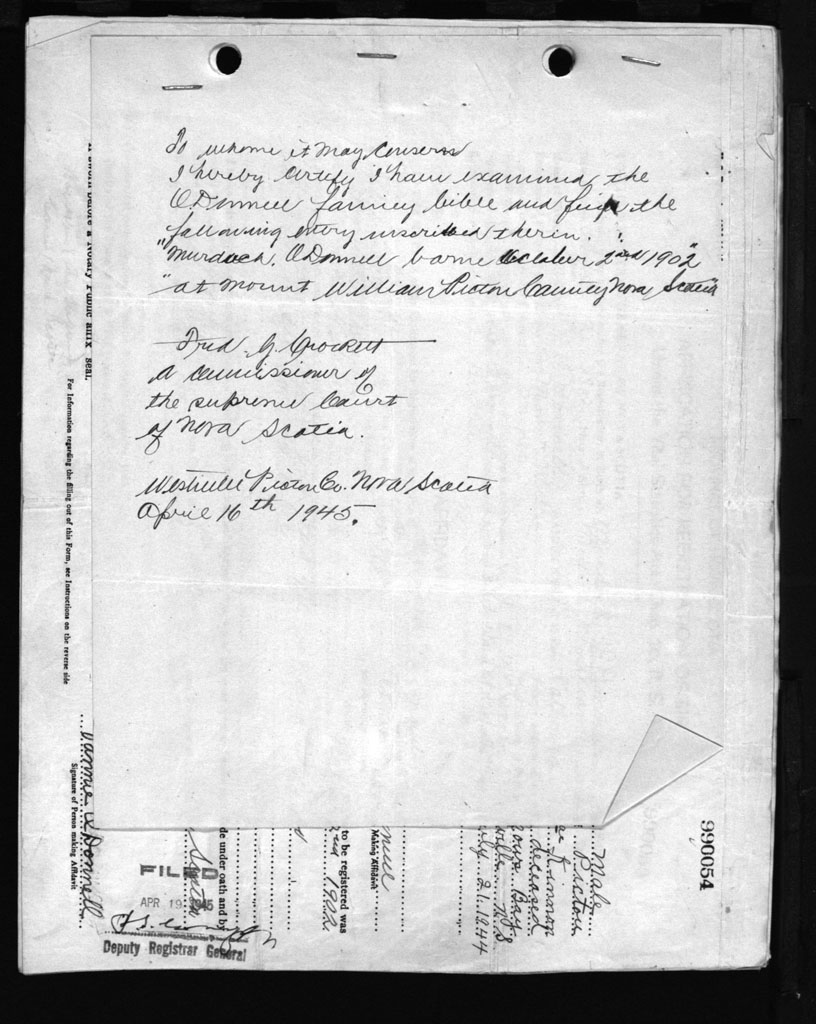 To whome it may consern
I hereby certify I have examined the
O'Donnell familey bible and find the
following entry inscribed therin.
"Murdoch O'Donnell borne October 2nd 1902"
"at Mount William Pictou County Nova Scotia
Fred G. Crockett
A commissioner of
the supreme Court
of Nova Scotia.
Westville Pictou Co. Nova Scotia
April 16th 1945.
a Notary Public affix seal.
For Information regarding the filling out of this Form, see Instructions on the reverse side
O'Donnell
Signature of Person making Affidavit
FILED
APR 19 1945
Deputy Registrar General
de under oath and by
to be registered was
2nd 1902
Making Affidavit
Male
Pictou
deceased
July 21. 1944
990054